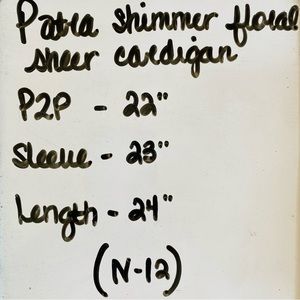 Patra shimmer floral
sheer cardigan
P2P - 22"
Sleeve - 23"
Length - 24"
(N-12)